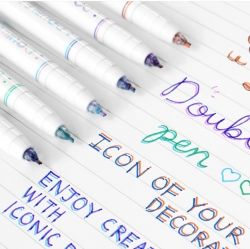 Doub
pen
ICON OF YOUR
DECORA
ENJOY CREAT
WITH
ICONIC